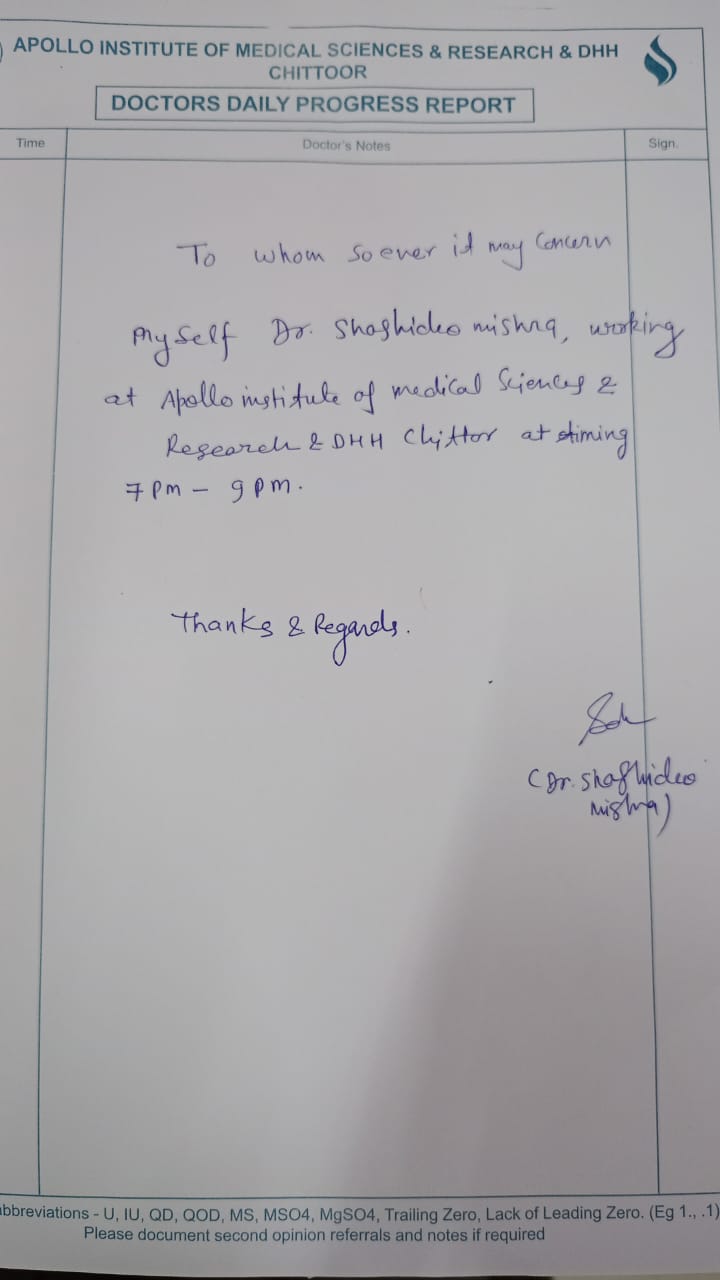 APOLLO INSTITUTE OF MEDICAL SCIENCES & RESEARCH & DHH
CHITTOOR
DOCTORS DAILY PROGRESS REPORT
Time Doctor's Notes Sign.
To whom so ever it may Concern
Myself Dr. Shashideo mishra, working
at Apollo institute of medical Sciences &
Research & DHH Chittor at timing
7 Pm – 9 pm.
Thanks & Regards.
(Dr. Shashideo
Mishra)
abbreviations - U, IU, QD, QOD, MS, MSO4, MgSO4, Trailing Zero, Lack of Leading Zero. (Eg 1., .1)
Please document second opinion referrals and notes if required